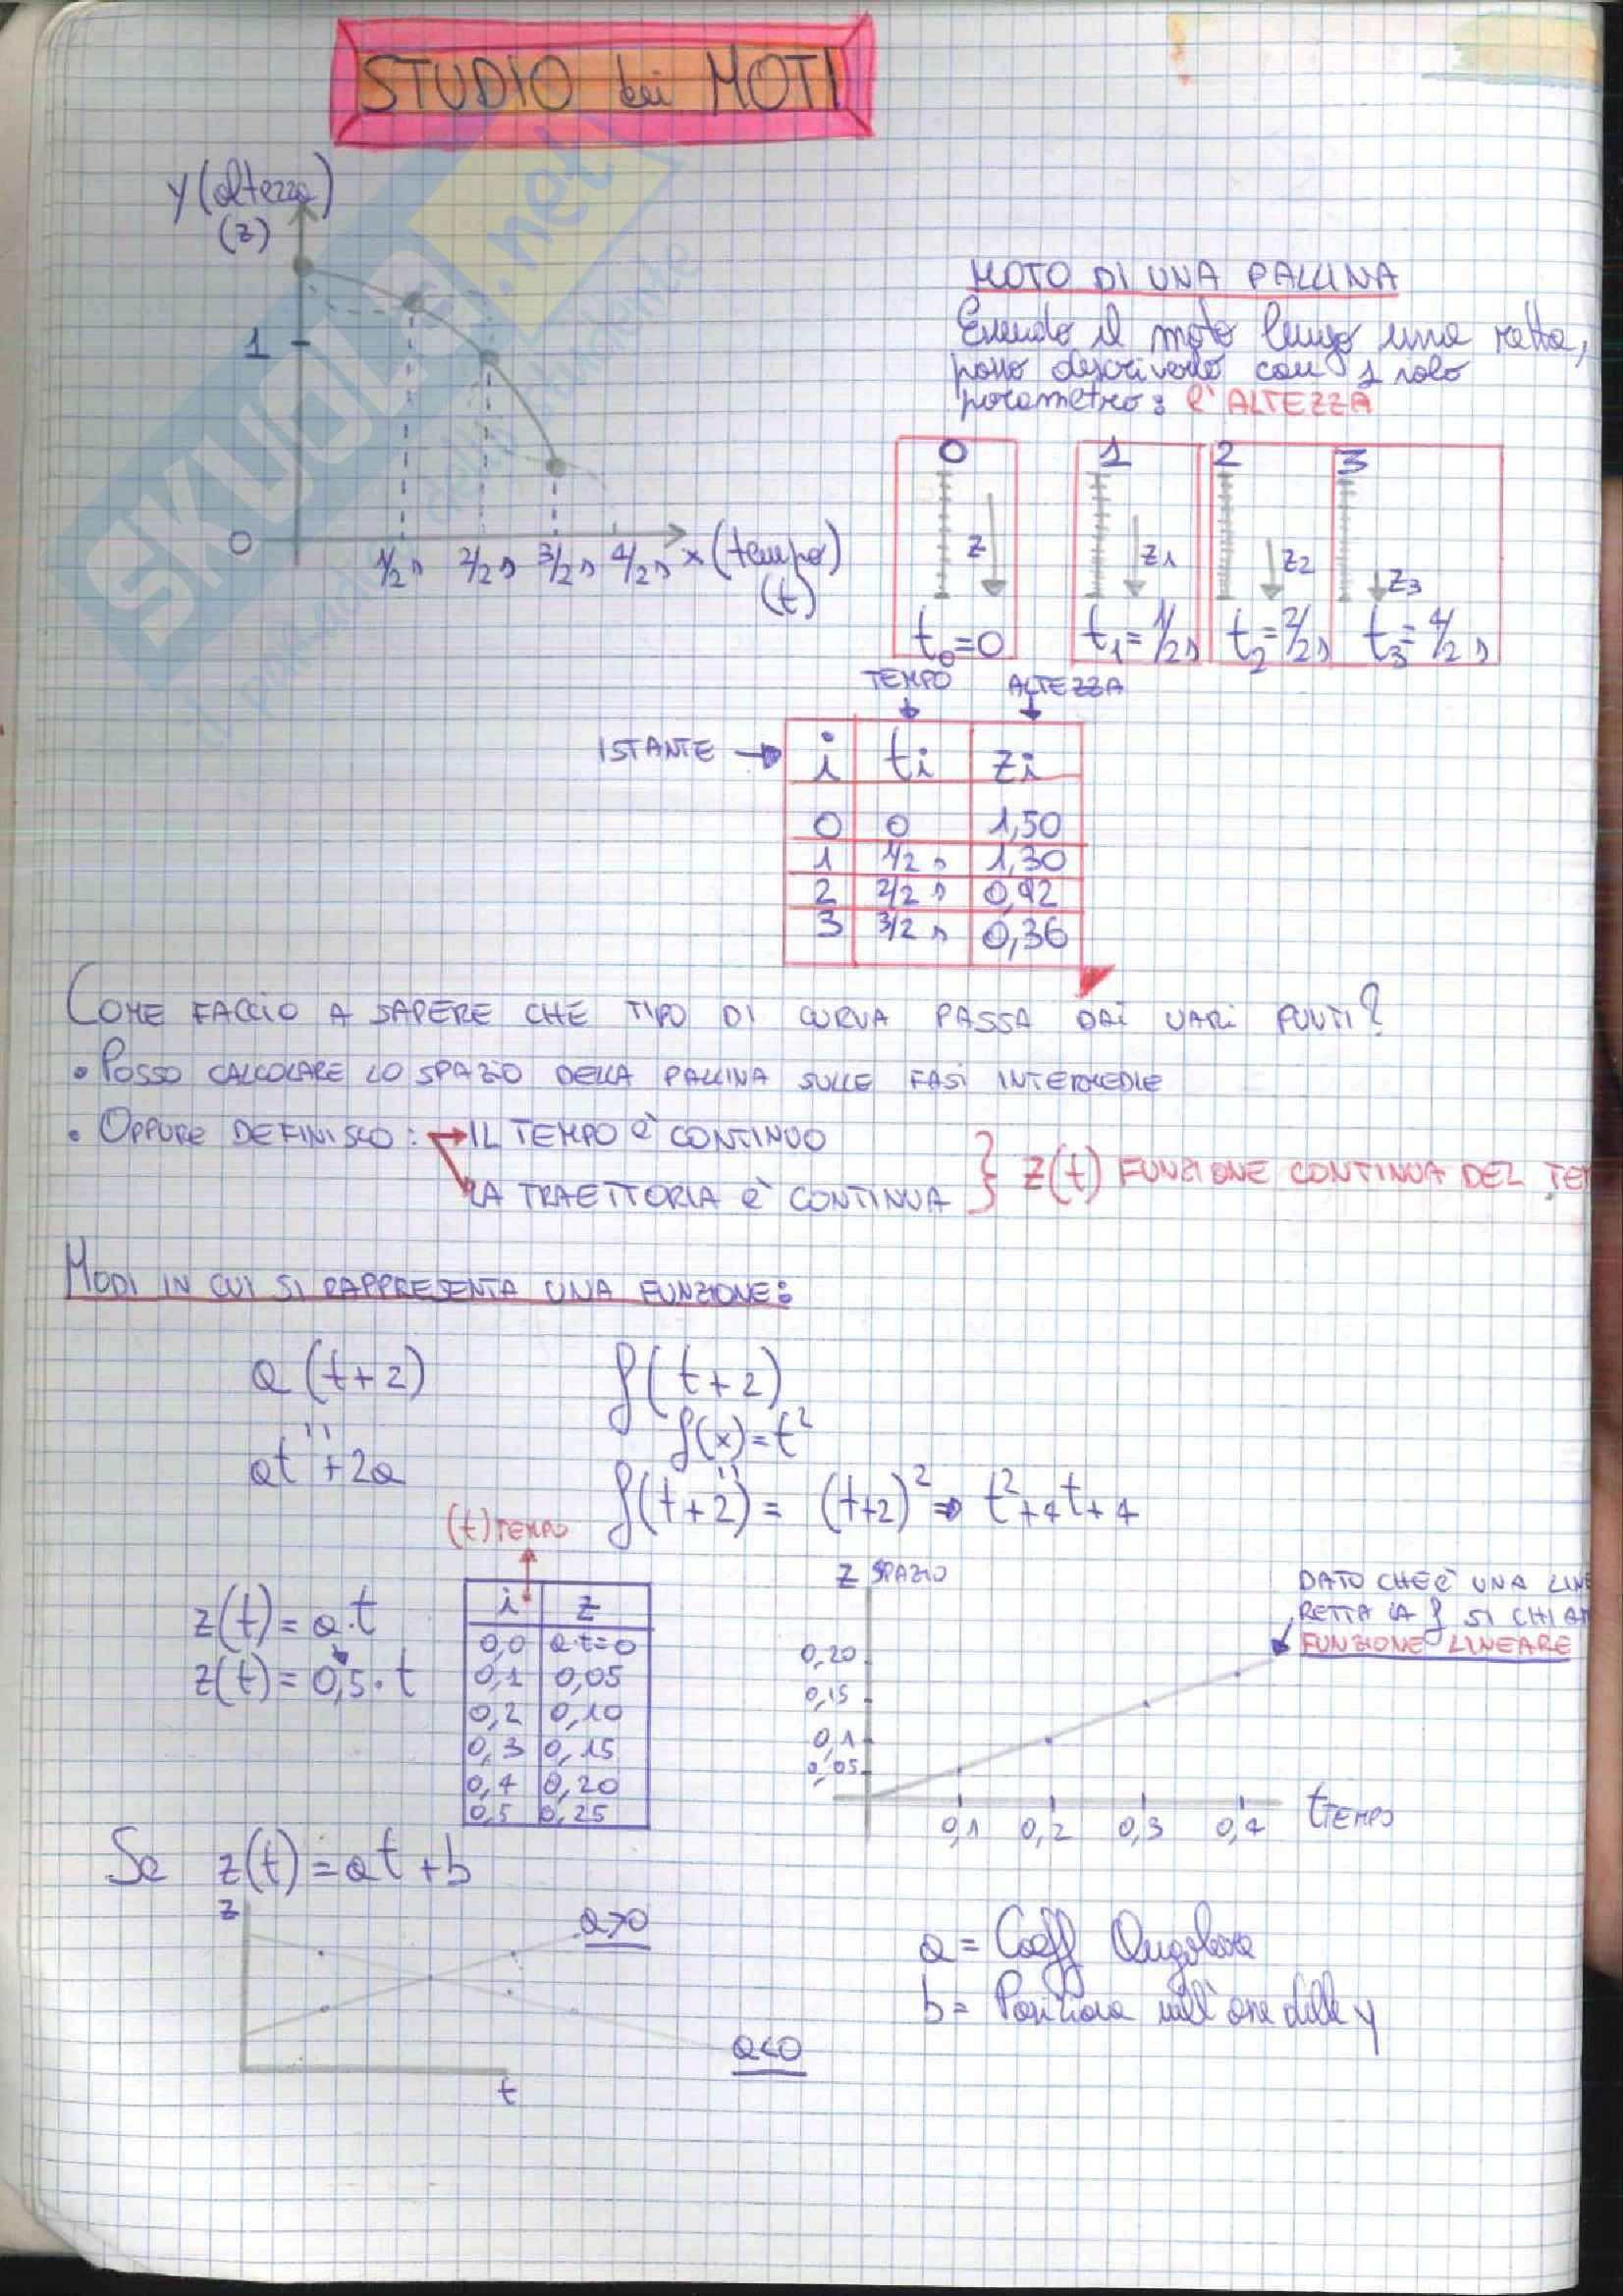 STUDIO dei MOTI
y (altezza)
(z)
1
0
1/2 s 2/2 s 3/2 s 4/2 s x (tempo)
(t)
SKUOLA.net
MOTO DI UNA PALLINA
Essendo il moto lungo una retta,
posso descriverlo con 1 solo
parametro: l'ALTEZZA
0 1 2 3
z z1 z2 z3
t0=0 t1=1/2 s t2=2/2 s t3=4/2 s
TEMPO ALTEZZA
ISTANTE → i ti zi
0 0 1,50
1 1/2 s 1,30
2 2/2 s 0,92
3 3/2 s 0,36
COME FACCIO A SAPERE CHE TIPO DI CURVA PASSA DAI VARI PUNTI?
• POSSO CALCOLARE LO SPAZIO DELLA PALLINA SULLE FASI INTERMEDIE
• OPPURE DEFINISCO: → IL TEMPO è CONTINUO
LA TRAETTORIA è CONTINUA } z(t) FUNZIONE CONTINUA DEL TE
MODI IN CUI SI RAPPRESENTA UNA FUNZIONE:
a (t+2) f(t+2)
" f(x)=t²
at+2a "
f(t+2) = (t+2)² ⇒ t²+4t+4
(t) TEMPO
z(t)=a·t
z(t)=0,5·t
i z
0,0 a·t=0
0,1 0,05
0,2 0,10
0,3 0,15
0,4 0,20
0,5 0,25
z SPAZIO
0,20
0,15
0,1
0,05
0,1 0,2 0,3 0,4 t TEMPO
DATO CHE è UNA LINE
RETTA LA f SI CHIA
FUNZIONE LINEARE
Se z(t)=at+b
z
a>0
a<0
t
a = Coeff Angolare
b = Posizione sull'asse delle y